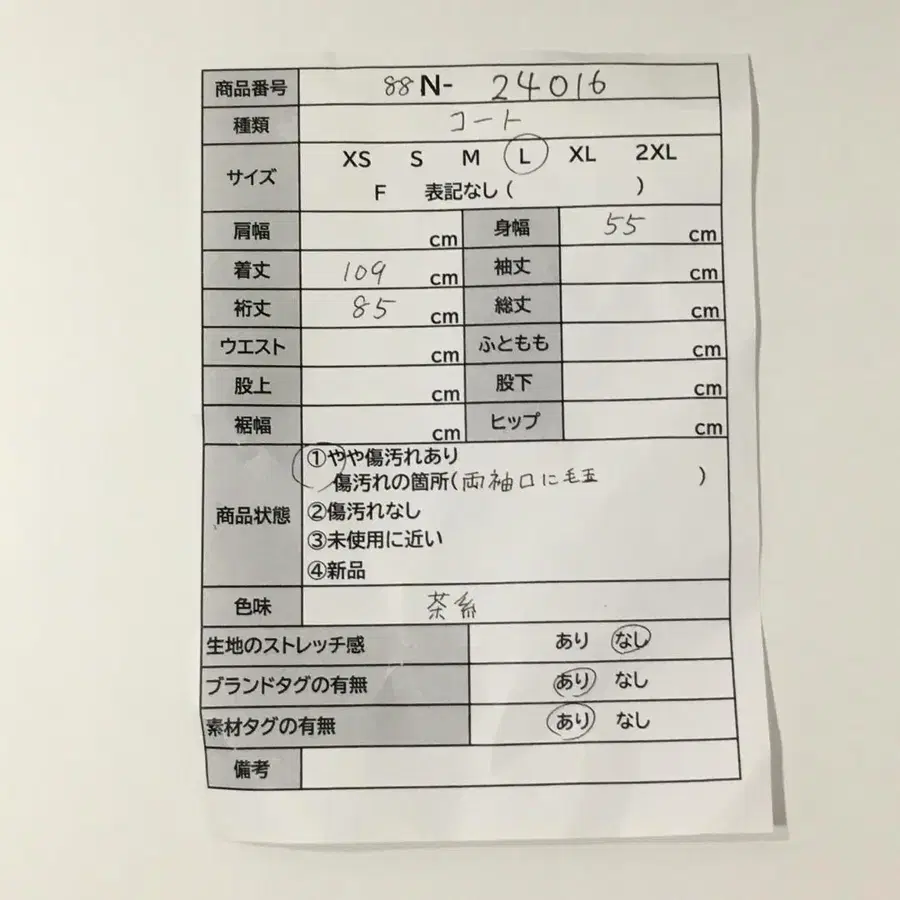 商品番号 88N- 24016
種類 コート
サイズ XS S M L XL 2XL
F 表記なし ( )
肩幅 cm 身幅 55 cm
着丈 109 cm 袖丈 cm
裄丈 85 cm 総丈 cm
ウエスト cm ふともも cm
股上 cm 股下 cm
裾幅 cm ヒップ cm
商品状態 ①やや傷汚れあり
傷汚れの箇所(両袖口に毛玉 )
②傷汚れなし
③未使用に近い
④新品
色味 茶系
生地のストレッチ感 あり なし
ブランドタグの有無 あり なし
素材タグの有無 あり なし
備考